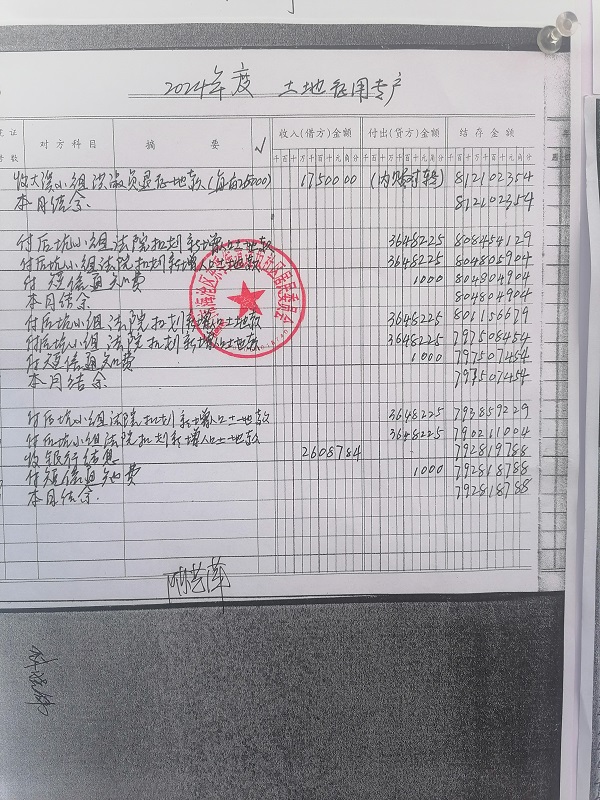 2024年度 土地征用专户
对方科目 摘要 √ 收入(借方)金额 付出(贷方)金额 结存金额
千百十万千百十元角分 千百十万千百十元角分 千百十万千百十元角分
收大 小组洪淑员 征地款(每亩25000) 1750000 812102354
本月结余. 812102354
付后坑小组法院扣划新增人口土地款 3648225 808454129
付后坑小组法院扣划新增人口土地款 3648225 804805904
付短信通知费 1000 804804904
本月结余 804804904
付后坑小组法院扣划新增人口土地款 3648225 801156679
付后坑小组法院扣划新增人口土地款 3648225 797508454
付短信通知费 1000 797507454
本月结余 797507454
付后坑小组法院扣划新增人口土地款 3648225 793859229
付后坑小组法院扣划新增人口土地款 3648225 790211004
收银行结息 2608784 792819788
付短信通知费 1000 792818788
本月结余. 792818788